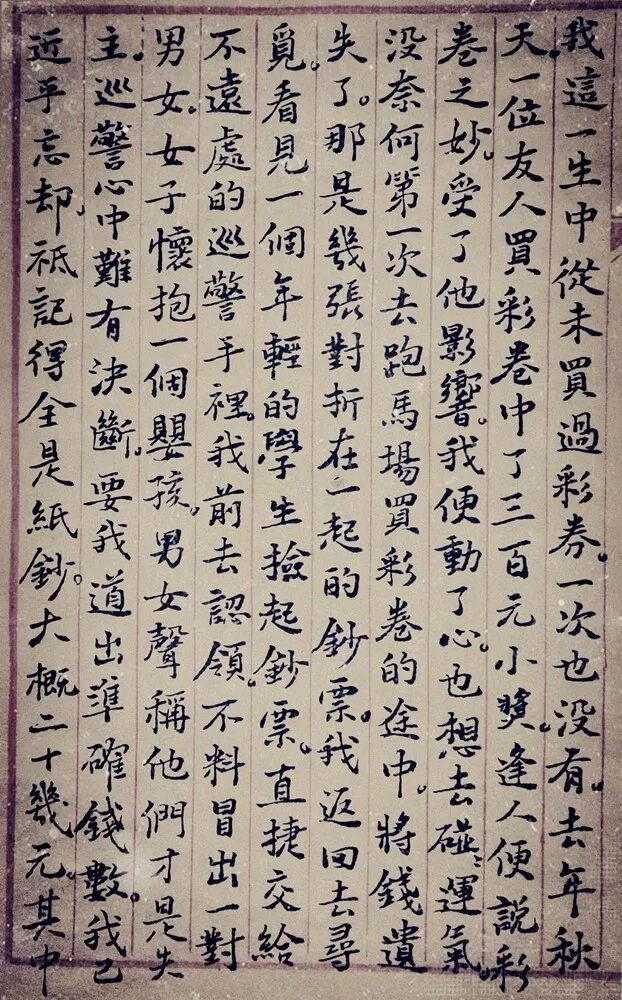 我這一生中從未買過彩券。一次也没有。去年秋
天。一位友人買彩卷中了三百元小獎。逢人便說彩
卷之妙。受了他影響。我便動了心。也想去碰碰運氣。
没奈何第一次去跑馬場買彩卷的途中。將錢遺
失了。那是幾張對折在一起的鈔票。我返回去尋
覓。看見一個年輕的學生撿起鈔票。直捷交給
不遠處的巡警手裡。我前去認領。不料冒出一對
男女。女子懷抱一個嬰孩。男女聲稱他們才是失
主。巡警心中難有決斷。要我道出準確錢數。我已
近乎忘却。祗記得全是紙鈔。大概二十幾元。其中